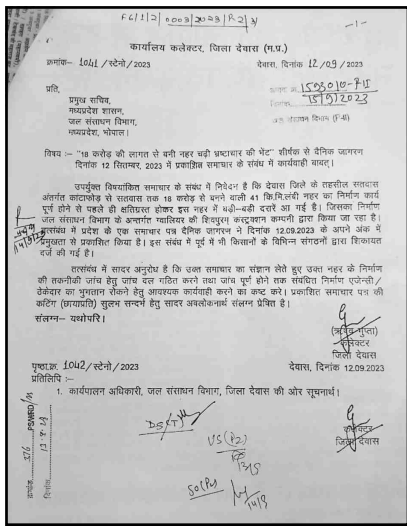 F6/1/2/0003/2023/P2/
-1-
कार्यालय कलेक्टर, जिला देवास (म.प्र.)
क्रमांक- 1041 /स्टेनो/2023
देवास, दिनांक 12/09/2023
प्रति,
1593010-FII
15/9/2023
प्रमुख सचिव,
मध्यप्रदेश शासन,
जल संसाधन विभाग,
मध्यप्रदेश, भोपाल।
जल संसाधन विभाग (F-II)
विषय :– "18 करोड की लागत से बनी नहर चढ़ी भ्रष्टाचार की भेंट" शीर्षक से दैनिक जागरण
दिनांक 12 सितम्बर, 2023 में प्रकाशित समाचार के संबंध में कार्यवाही बावत्।
उपर्युक्त विषयांकित समाचार के संबंध में निवेदन है कि देवास जिले के तहसील सतवास
अंतर्गत कांटाफोड़ से सतवास तक 18 करोड़ से बनने वाली 41 कि.मि.लंबी नहर का निर्माण कार्य
पूर्ण होने से पहले ही क्षतिग्रस्त होकर इस नहर में बड़ी–बड़ी दरारें आ गई है। जिसका निर्माण
जल संसाधन विभाग के अन्तर्गत ग्वालियर की शिवपुरम कंस्ट्रक्शन कम्पनी द्वारा किया जा रहा है।
तत्संबंध में प्रदेश के एक समाचार पत्र दैनिक जागरण ने दिनांक 12.09.2023 के अपने अंक में
प्रमुखता से प्रकाशित किया है। इस संबंध में पूर्व में भी किसानों के विभिन्न संगठनों द्वारा शिकायत
दर्ज की गई है।
तत्संबंध में सादर अनुरोध है कि उक्त समाचार का संज्ञान लेते हुए उक्त नहर के निर्माण
की तकनीकी जांच हेतु जांच दल गठित करने तथा जांच पूर्ण होने तक संबंधित निर्माण एजेन्सी/
ठेकेदार का भुगतान रोकने हेतु आवश्यक कार्यवाही करने का कष्ट करें। प्रकाशित समाचार पत्र की
कटिंग (छायाप्रति) सुलभ सन्दर्भ हेतु सादर अवलोकनार्थ संलग्न प्रेषित है।
संलग्न– यथोपरि।
(ऋषव गुप्ता)
कलेक्टर
जिला देवास
पृष्ठा.क्र. 1042 /स्टेनो/2023
देवास, दिनांक 12.09.2023
प्रतिलिपि :–
1. कार्यपालन अधिकारी, जल संसाधन विभाग, जिला देवास की ओर सूचनार्थ।
कलेक्टर
जिला देवास
DS(T)
US(P2)
SO(P2)
14/9
क्रमांक 376 PS/WRD/
दिनांक 13.9.23